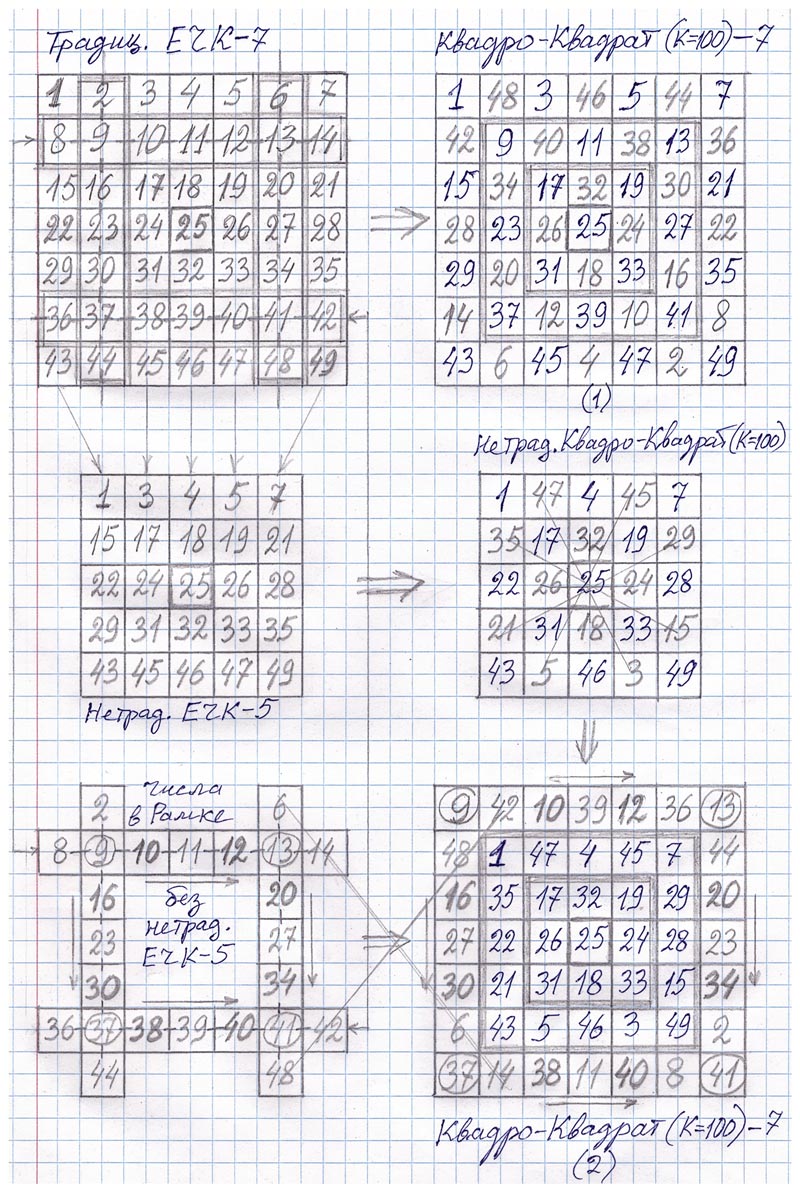 Традиц. ЕЧК-7
Квадро-Квадрат (К=100)-7
1 2 3 4 5 6 7
8 9 10 11 12 13 14
15 16 17 18 19 20 21
22 23 24 25 26 27 28
29 30 31 32 33 34 35
36 37 38 39 40 41 42
43 44 45 46 47 48 49
1 48 3 46 5 44 7
42 9 40 11 38 13 36
15 34 17 32 19 30 21
28 23 26 25 24 27 22
29 20 31 18 33 16 35
14 37 12 39 10 41 8
43 6 45 4 47 2 49
(1)
Нетрад. Квадро-Квадрат (К=100)
1 3 4 5 7
15 17 18 19 21
22 24 25 26 28
29 31 32 33 35
43 45 46 47 49
Нетрад. ЕЧК-5
1 47 4 45 7
35 17 32 19 29
22 26 25 24 28
21 31 18 33 15
43 5 46 3 49
2 числа 6
в Рамке
8 9 10 11 12 13 14
16 без 20
нетрад.
23 ЕЧК-5 27
30 34
36 37 38 39 40 41 42
44 48
9 42 10 39 12 36 13
48 1 47 4 45 7 44
16 35 17 32 19 29 20
27 22 26 25 24 28 23
30 21 31 18 33 15 34
6 43 5 46 3 49 2
37 14 38 11 40 8 41
Квадро-Квадрат (К=100)-7
(2)